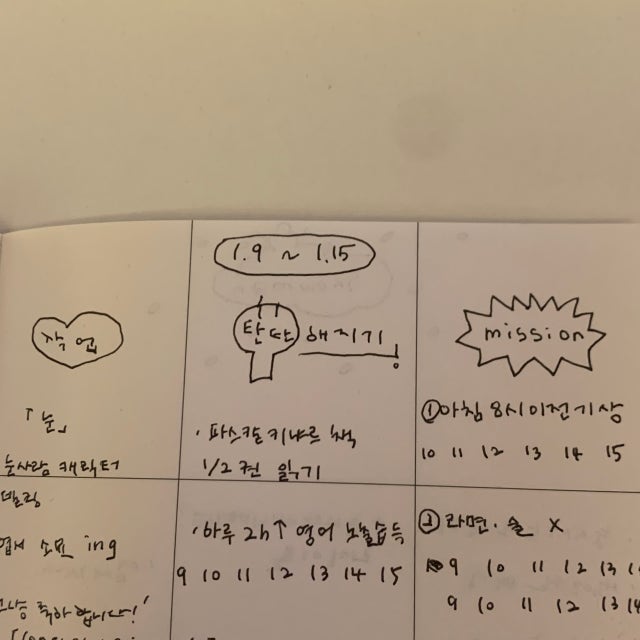 1.9 ~ 1.15
작업
「눈」
눈사람 캐릭터
엽서 소먼 ing
축하합니다!'
탄탄 해지기!
· 파스칼 키냐르 책
1/2권 읽기
· 하루 2h↑ 영어 노출습득
9 10 11 12 13 14 15
mission
① 아침 8시 이전 기상
10 11 12 13 14 15
② 라면·술 X
9 10 11 12 13 14
9 10 11 12 13 14